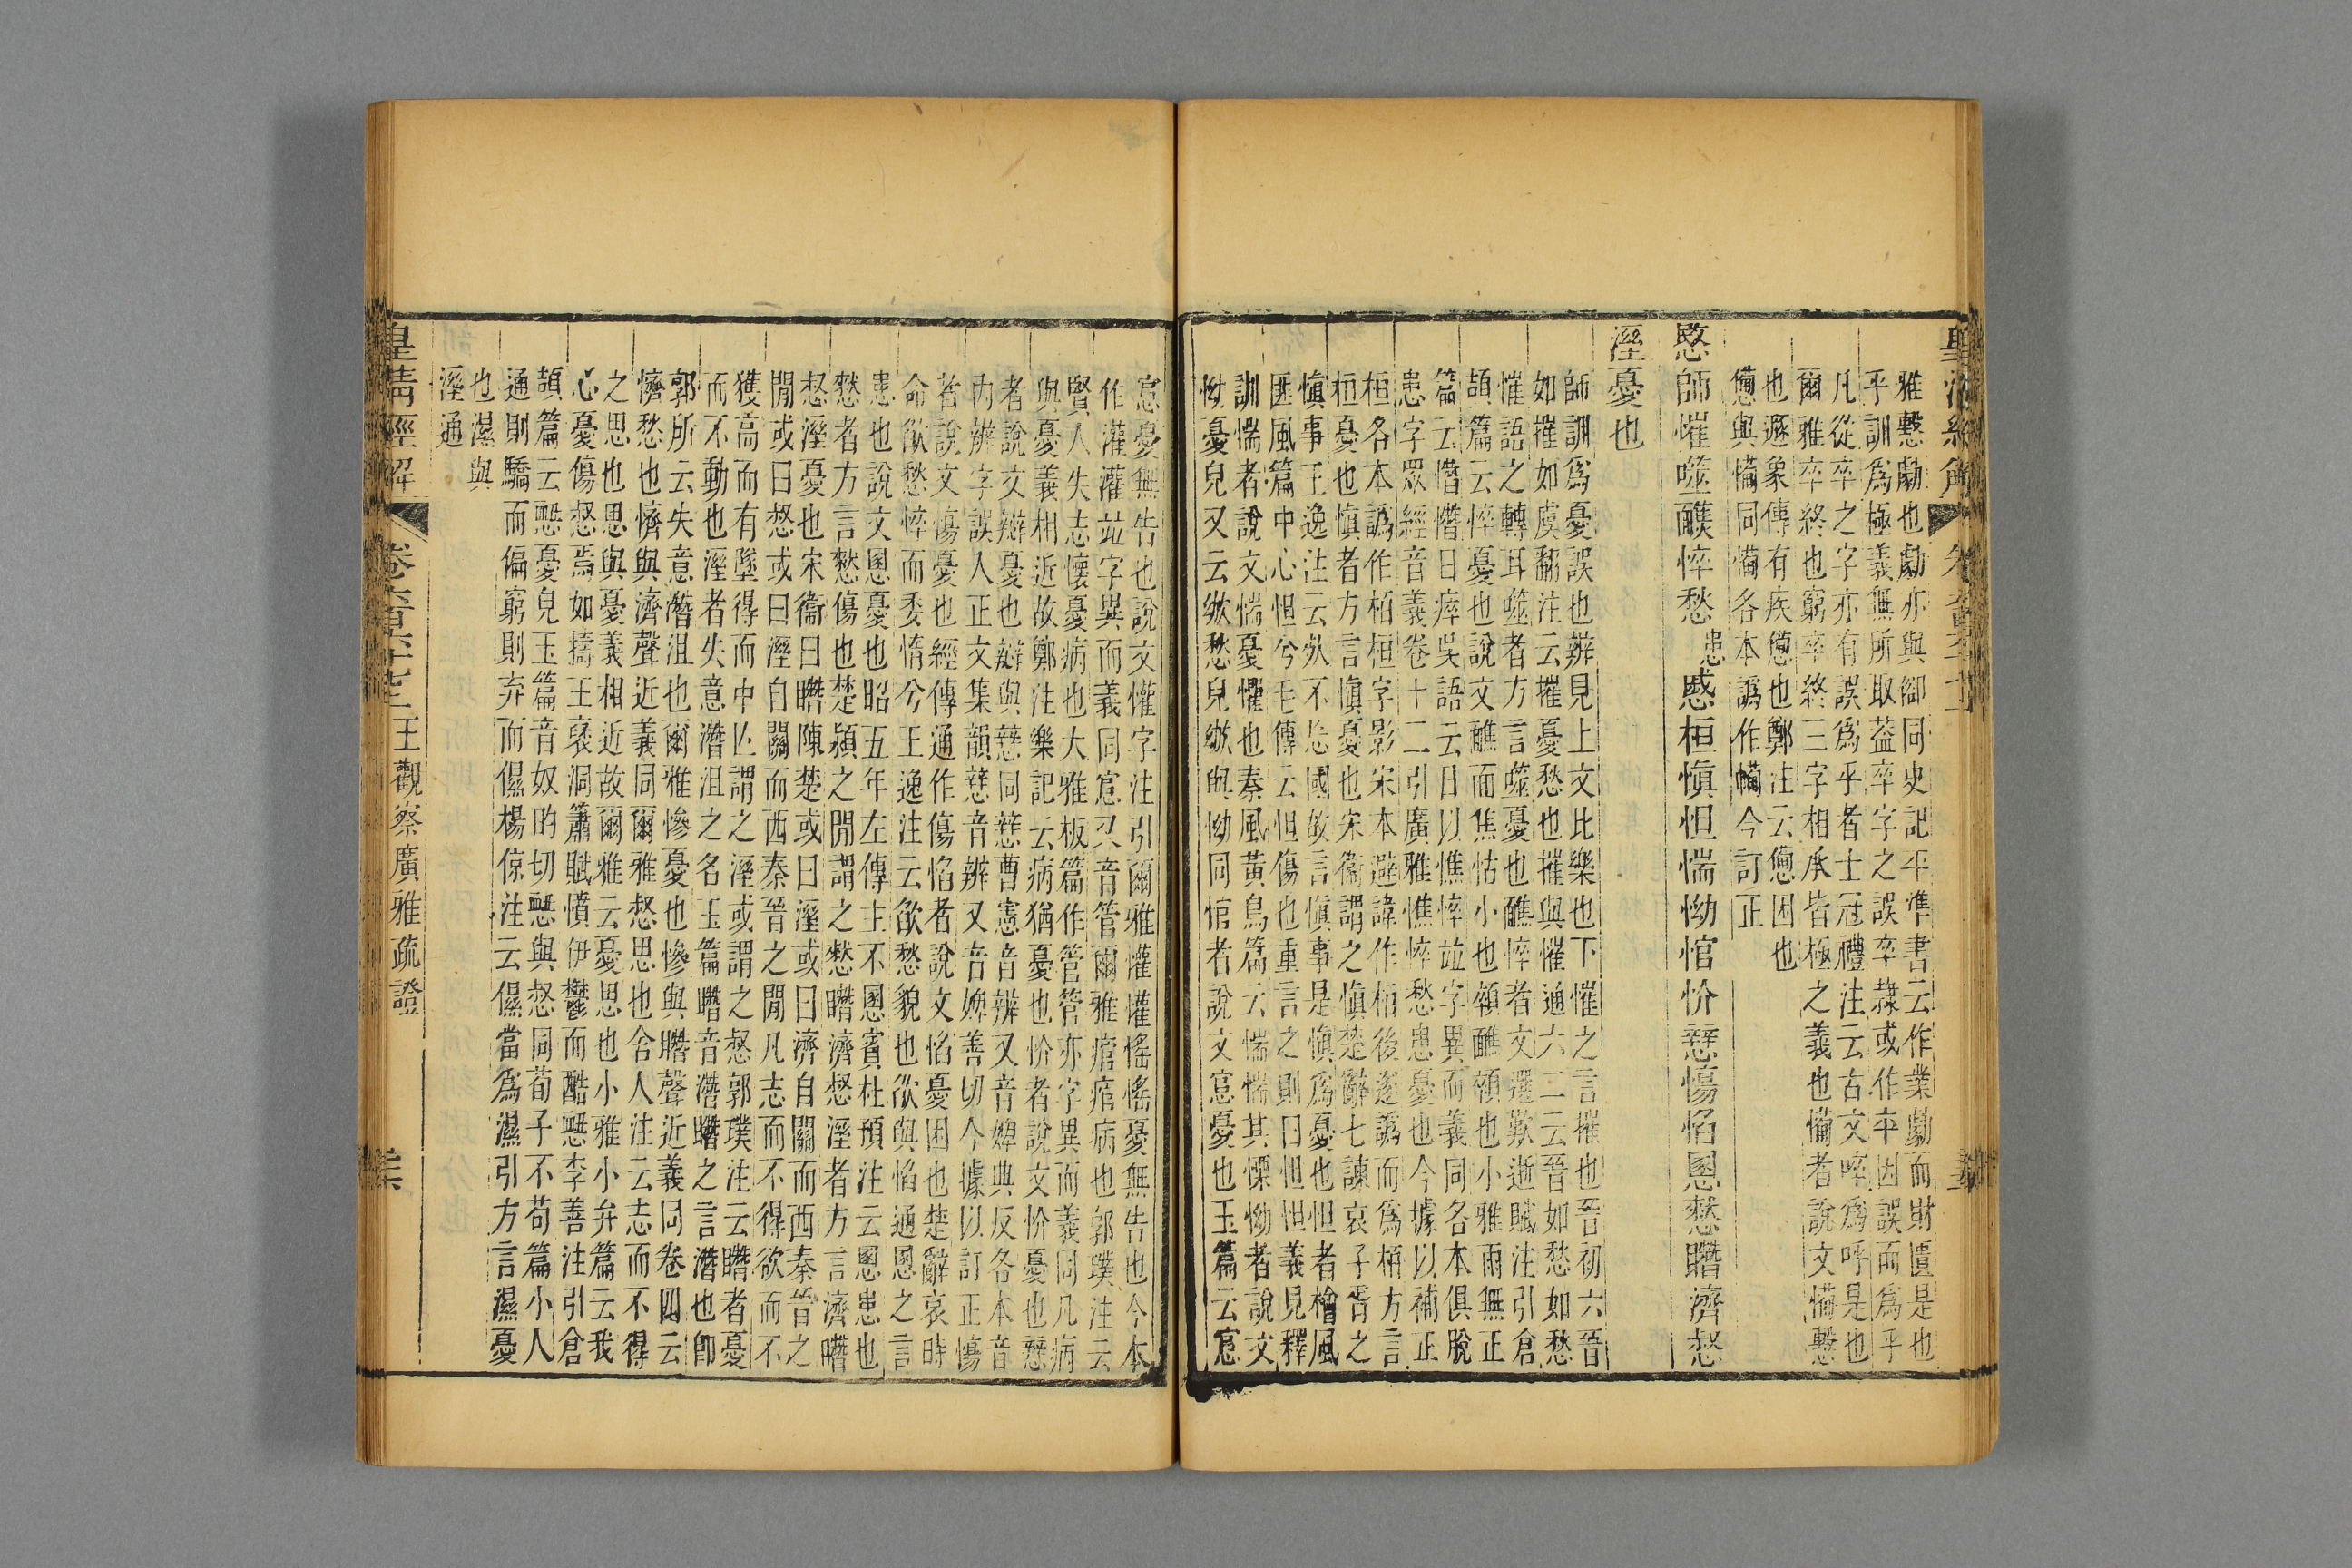 雅㦢勮也勮亦與御同史記平準書云作業勮而財匱是也
乎訓爲極義無所取蓋卒字之誤卒隸或作卆因誤而爲乎
凡從卒之字亦有誤爲乎者士冠禮注云古文啐爲呼是也
爾雅卒終也窮卒終三字相承皆極之義也㥶者說文㥶㦢
也遯象傳有疾憊也鄭注云憊困也
憊與㥶同㥶各本譌作㡜今訂正
愍師慛噬醮悴愁患慼桓愼怛惴怮悹忦㦚慯㤿慁憖㬱濟惄
溼憂也
師訓爲憂誤也辨見上文比樂也下慛之言摧也晉初六晉
如摧如虞翻注云摧憂愁也摧與慛通六二云晉如愁如愁
慛語之轉耳噬者方言噬憂也醮悴者文選歎逝賦注引倉
頡篇云悴憂也說文醮面焦枯小也顦醮顇也小雅雨無正
篇云憯憯日瘁吳語云日以憔悴竝字異而義同各本俱脫
患字眾經音義卷十二引廣雅憔悴愁患憂也今據以補正
桓各本譌作栢桓字影宋本避諱作栢後遂譌而爲栢方言
桓憂也愼者方言愼憂也宋衞謂之愼楚辭七諫哀子胥之
愼事王逸注云欥不忘國故言愼事是愼爲憂也怛者檜風
匪風篇中心怛兮毛傳云怛傷也重言之則曰怛怛義見釋
訓惴者說文惴憂懼也秦風黃鳥篇云惴惴其慄怮者說文
怮憂皃又云欥愁皃欥與怮同悹者說文悹憂也玉篇云悹
悹憂無告也說文懽字注引爾雅懽懽愮愮憂無告也今本
作灌灌竝字異而義同悹又音管爾雅痯痯病也郭璞注云
賢人失志懷憂病也大雅板篇作管管亦字異而義同凡病
與憂義相近故鄭注樂記云病猶憂也忦者說文忦憂也㦚
者說文辯憂也辯與㦚同㦚曹憲音辨又音婢典反各本音
內辨字誤入正文集韻㦚音辨又音婢善切今據以訂正慯
者說文慯憂也經傳通作傷㤿者說文㤿憂困也楚辭哀時
命欿愁悴而委惰兮王逸注云欿愁貌也欿與㤿通慁之言
患也說文慁憂也昭五年左傳主不慁賓杜預注云慁患也
憖者方言憖傷也楚潁之閒謂之憖㬱濟惄溼者方言濟㬱
惄溼憂也宋衞曰㬱陳楚或曰溼或曰濟自關而西秦晉之
閒或曰惄或曰溼自關而西秦晉之閒凡志而不得欲而不
獲高而有墜得而中亾謂之溼或謂之惄郭璞注云㬱者憂
而不動也溼者失意濳沮之名玉篇㬱音濳㬱之言濳也卽
郭所云失意濳沮也爾雅慘憂也慘與㬱聲近義同卷四云
懠愁也懠與濟聲近義同爾雅惄思也舍人注云志而不得
之思也思與憂義相近故爾雅云憂思也小雅小弁篇云我
心憂傷惄焉如擣王襃洞簫賦憤伊鬱而酷㥾李善注引倉
頡篇云㥾憂皃玉篇音奴的切㥾與惄同荀子不苟篇小人
通則驕而偏窮則弃而儑楊倞注云儑當爲濕引方言濕憂
也濕與
溼通
皇清經解
王觀察廣雅疏證